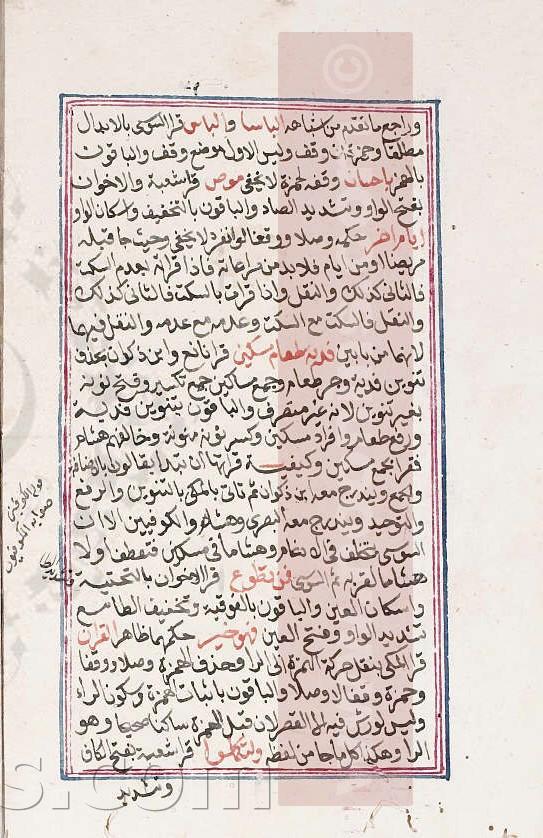 وراجع ما تقدم من اشباهه الباسا والباس قرا السوسي بالابدال
مطلقا وحمزة ان وقف وليس الاول موضع وقف والباقون
بالهمز باحسان وقفه لحمزة لا يخفى موص قرا شعبة والاخوان
بفتح الواو وتشديد الصاد والباقون بالتخفيف واسكان الواو
ايام اخر حكمه وصلا ووقفا لو انفرد لا يخفى وحيث جا قبله
مريضا او من ايام فلا بد من مراعاته فاذا قراته بعدم السكت
فالثاني كذلك والنقل واذا قرات بالسكت فالثاني كذلك
والنقل فالسكت مع السكت وعدمه مع عدمه والنقل فيهما
لانهما من بابين فدية طعام مسكين قرا نافع وابن ذكوان بحذف
تنوين فدية وجر طعام وجمع مساكين جمع تكسير وفتح نونه
بغير تنوين لانه غير منصرف والباقون بتنوين فدية
ورفع طعام وافراد مسكين وكسر نونه منونة وخالفهم هشام
فقرا بجمع مسكين وكيفية قراتها ان تبدا بقالون بالاضافة
والجمع ويندرج معه ابن ذكوان ثم تاتي بالمكي بالتنوين والرفع
والتوحيد ويندرج معه البصري وهشام والكوفيين الا ان
السوسي يتخلف في طعام وهشاما في مسكين فتعطف ولا
هشاما لقربه ثم السوسي فمن تطوع قرا الاخوان بالتحتية وتشديد الطا
واسكان العين والباقون بالفوقية وتخفيف الطا مع
تشديد الواو وفتح العين فهو خير حكمهما ظاهر القران
قرا المكي بنقل حركة الهمزة الى الرا وحذف الهمزة وصلا ووقفا
وحمزة وقفا لا وصلا والباقون باثبات الهمزة وسكون الراء
وليس لورش فيه الا القصر لان قبل الهمزة ساكنا صحيحا وهو
الرا وهكذا كل ما جا من لفظه ولتكملوا قرا شعبة بفتح الكاف
وتشديد
صوابه الكوفيون
s.com